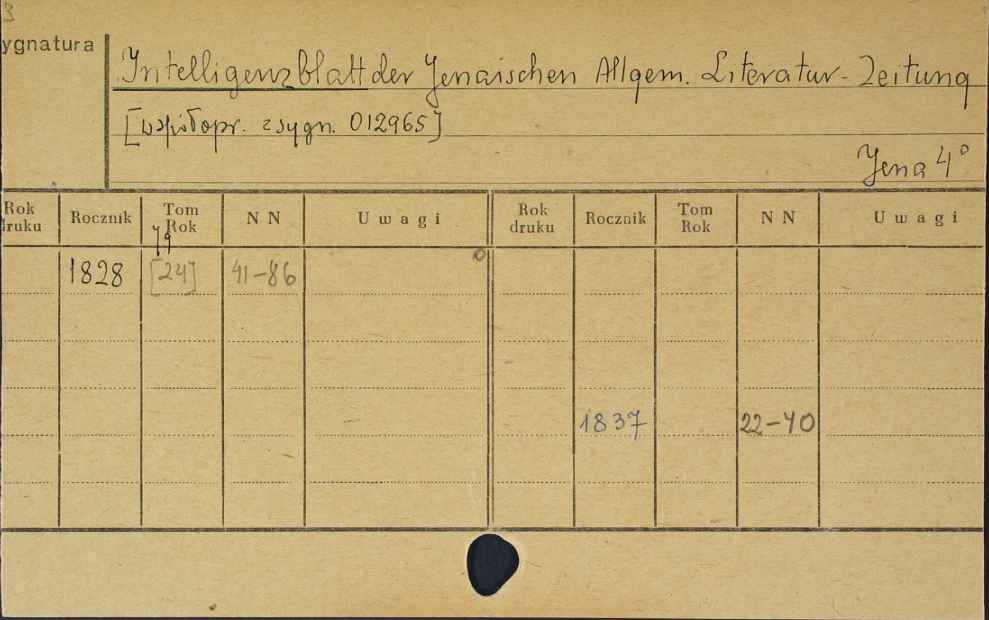 3
ygnatura
Intelligenzblatt der Jenaischen Allgem. Literatur-Zeitung
[współopr. z sygn. 012965]
Jena 4°
Rok druku Rocznik Tom Rok NN Uwagi Rok druku Rocznik Tom Rok NN Uwagi
1828 [24] 41-86
1837 22-40